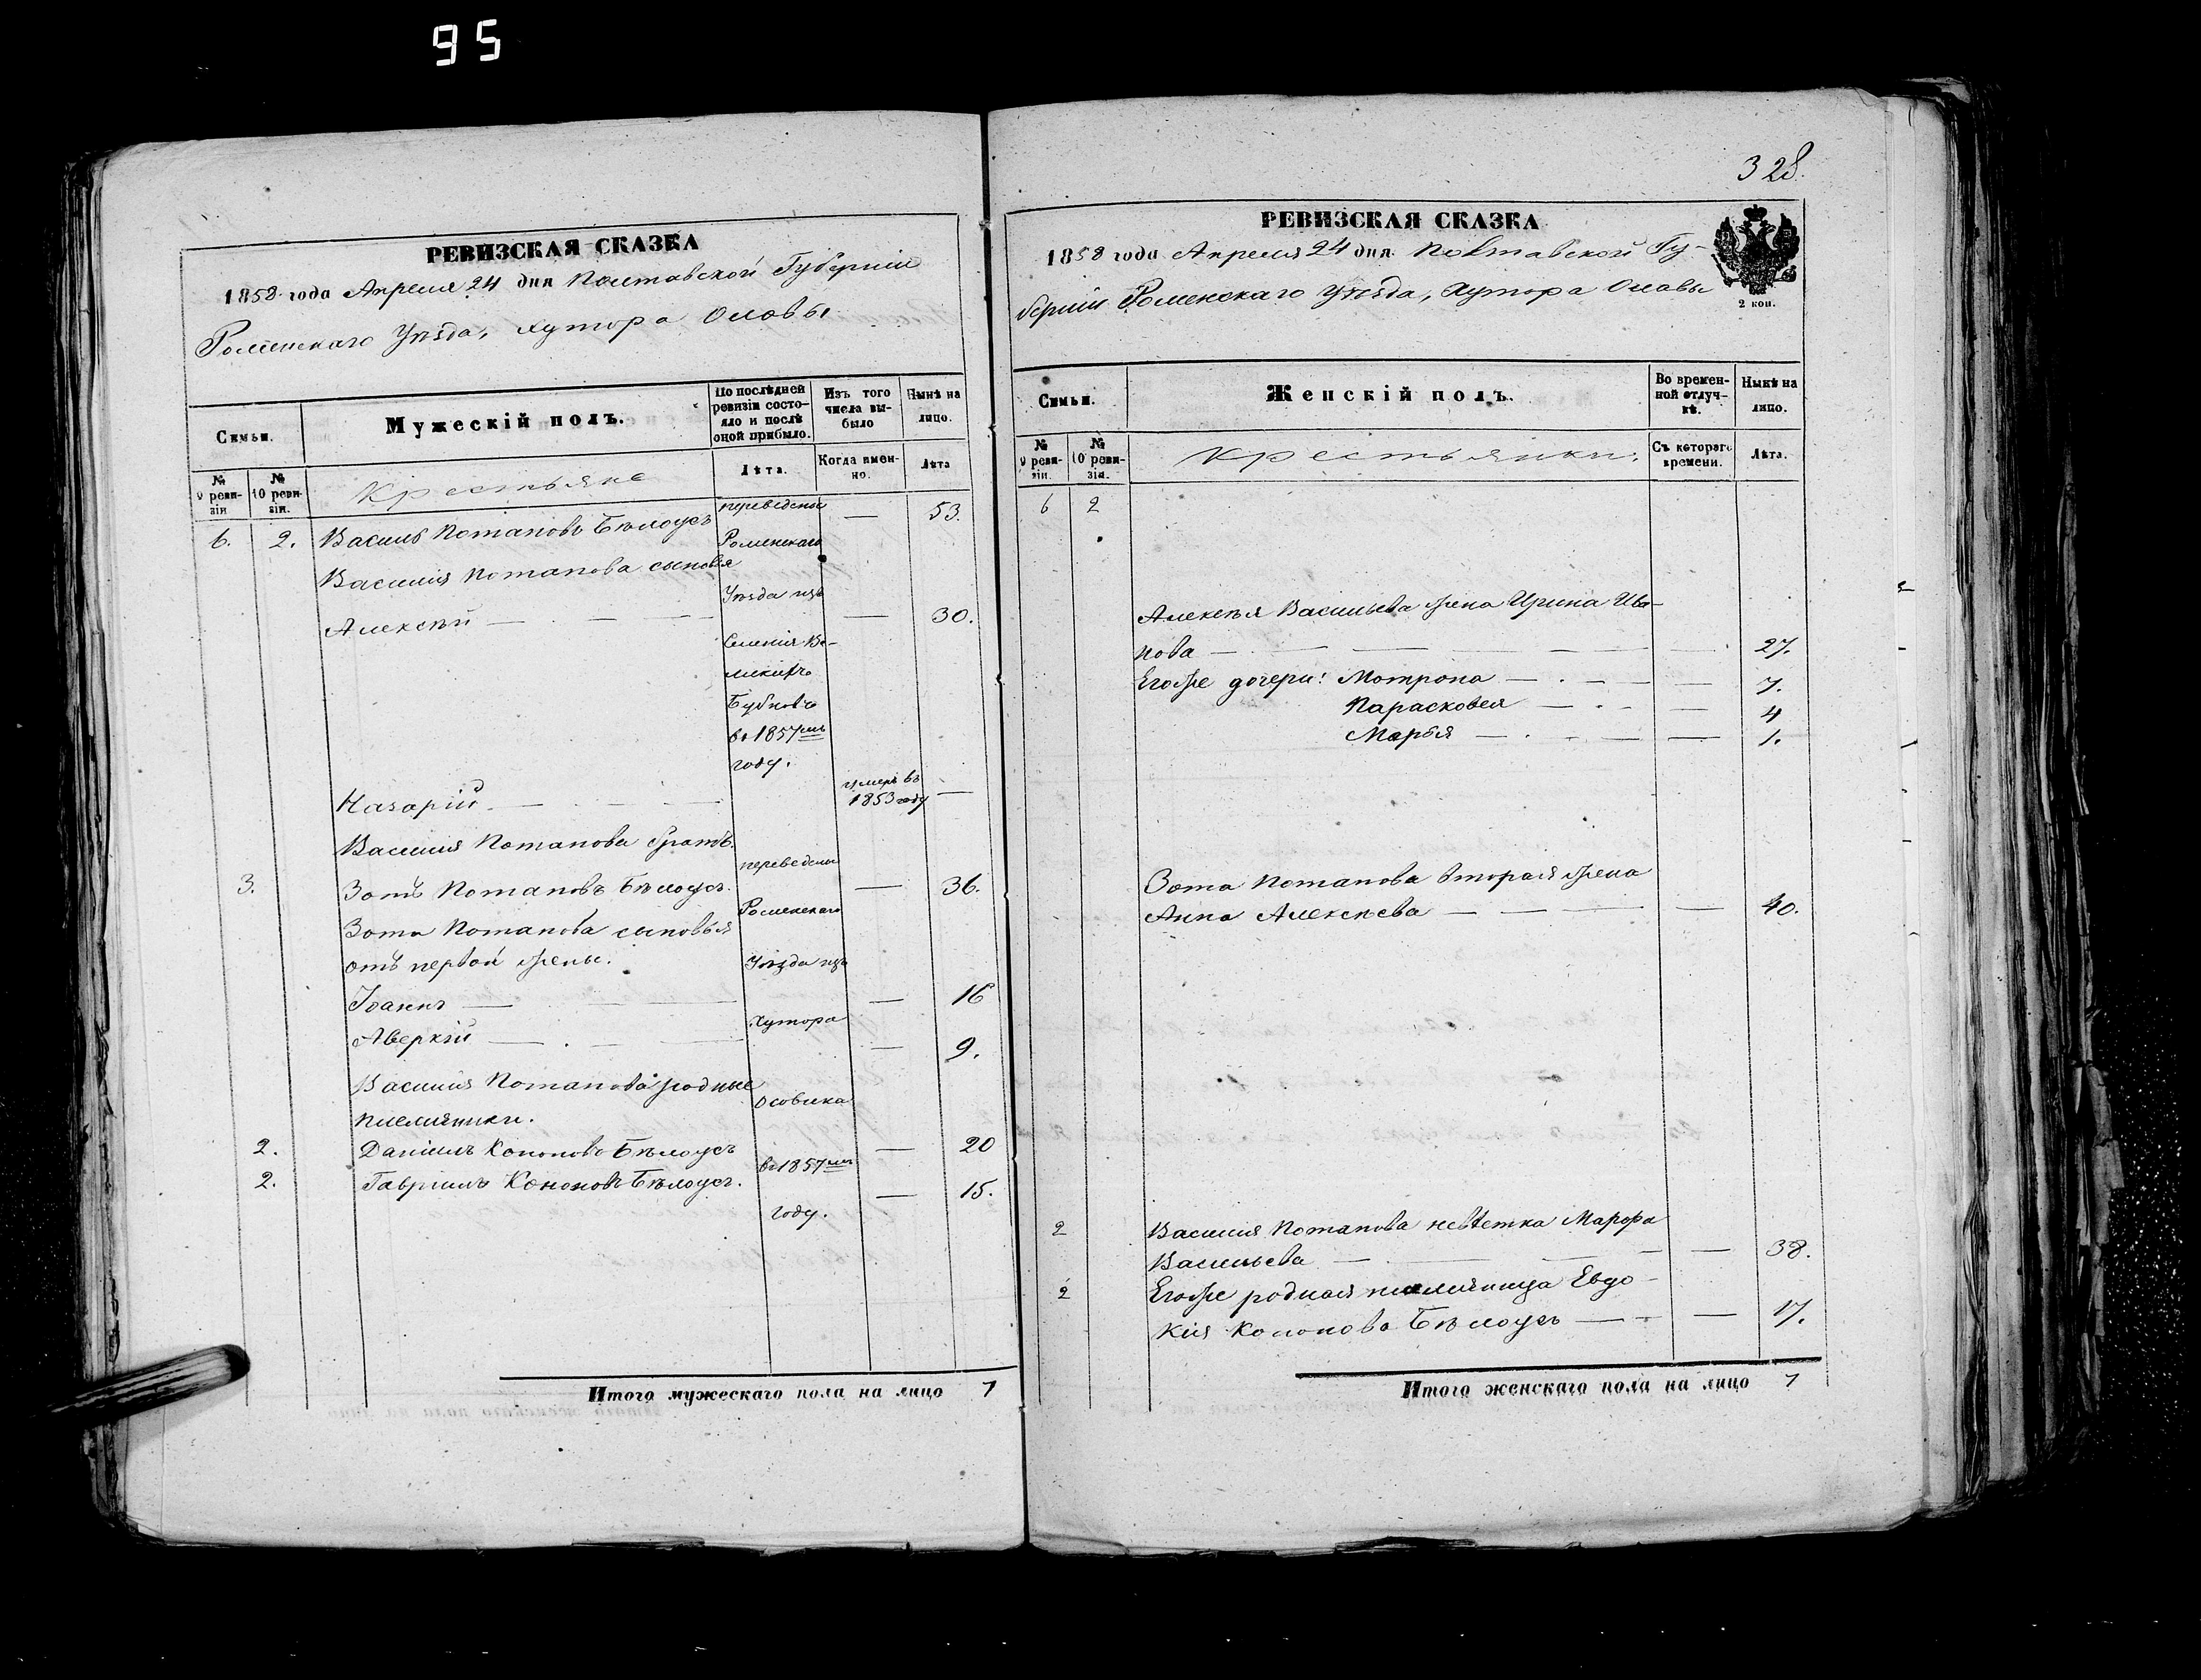 95
РЕВИЗСКАЯ СКАЗКА
1858 года Апреля 24 дня Полтавской Губерніи
Роменскаго Уѣзда, хутора Оловы
Семьи.
Мужескій полъ.
По послѣдней ревизіи состояло и послѣ оной прибыло.
Изъ того числа выбыло
Нынѣ на лицо.
№ 9 ревизіи
№ 10 ревизіи.
Крестьяне
Лѣта.
Когда именно.
Лѣта
6. 2. Василь Потаповъ Бѣлоусъ — 53.
Василія Потапова сыновья
Алексѣй — 30.
переведены
Роменскаго
Уѣзда изъ
Селенія Ве-
ликихъ
Бубновъ
въ 1857мъ
году.
Назарій — умеръ въ 1853 году —
Василія Потапова братъ.
3. Зотъ Потаповъ Бѣлоусъ. — 36.
Зота Потапова сыновья
отъ первой жены.
Іоаннъ — 16
Аверкій — 9.
Василія Потапова родные
племянники.
2. Даніилъ Кононовъ Бѣлоусъ — 20
2. Гавріилъ Кононовъ Бѣлоусъ. — 15.
переведены
Роменскаго
Уѣзда изъ
Хутора
Осовика
въ 1857мъ
году.
Итого мужескаго пола на лицо 7
328.
РЕВИЗСКАЯ СКАЗКА
1858 года Апреля 24 дня Полтавской Гу-
берніи Роменскаго Уѣзда, Хутора Оловы
2 коп.
Семьи.
Женскій полъ.
Во временной отлучкѣ.
Нынѣ на лицо.
№ 9 ревизіи.
№ 10 ревизіи.
Крестьянки.
Съ котораго времени.
Лѣта.
6 2
Алексѣя Васильева жена Ирина Ива-
нова — 27.
Его же дочери: Мотрона — 7.
Парасковея — 4
Марья — 1.
Зота Потапова вторая жена
Анна Алексѣева — 40.
2 Василія Потапова невѣстка Марфа
Васильева — 38.
2 Его же родная племяница Евдо-
кія Кононова Бѣлоусъ — 17.
Итого женскаго пола на лицо 7